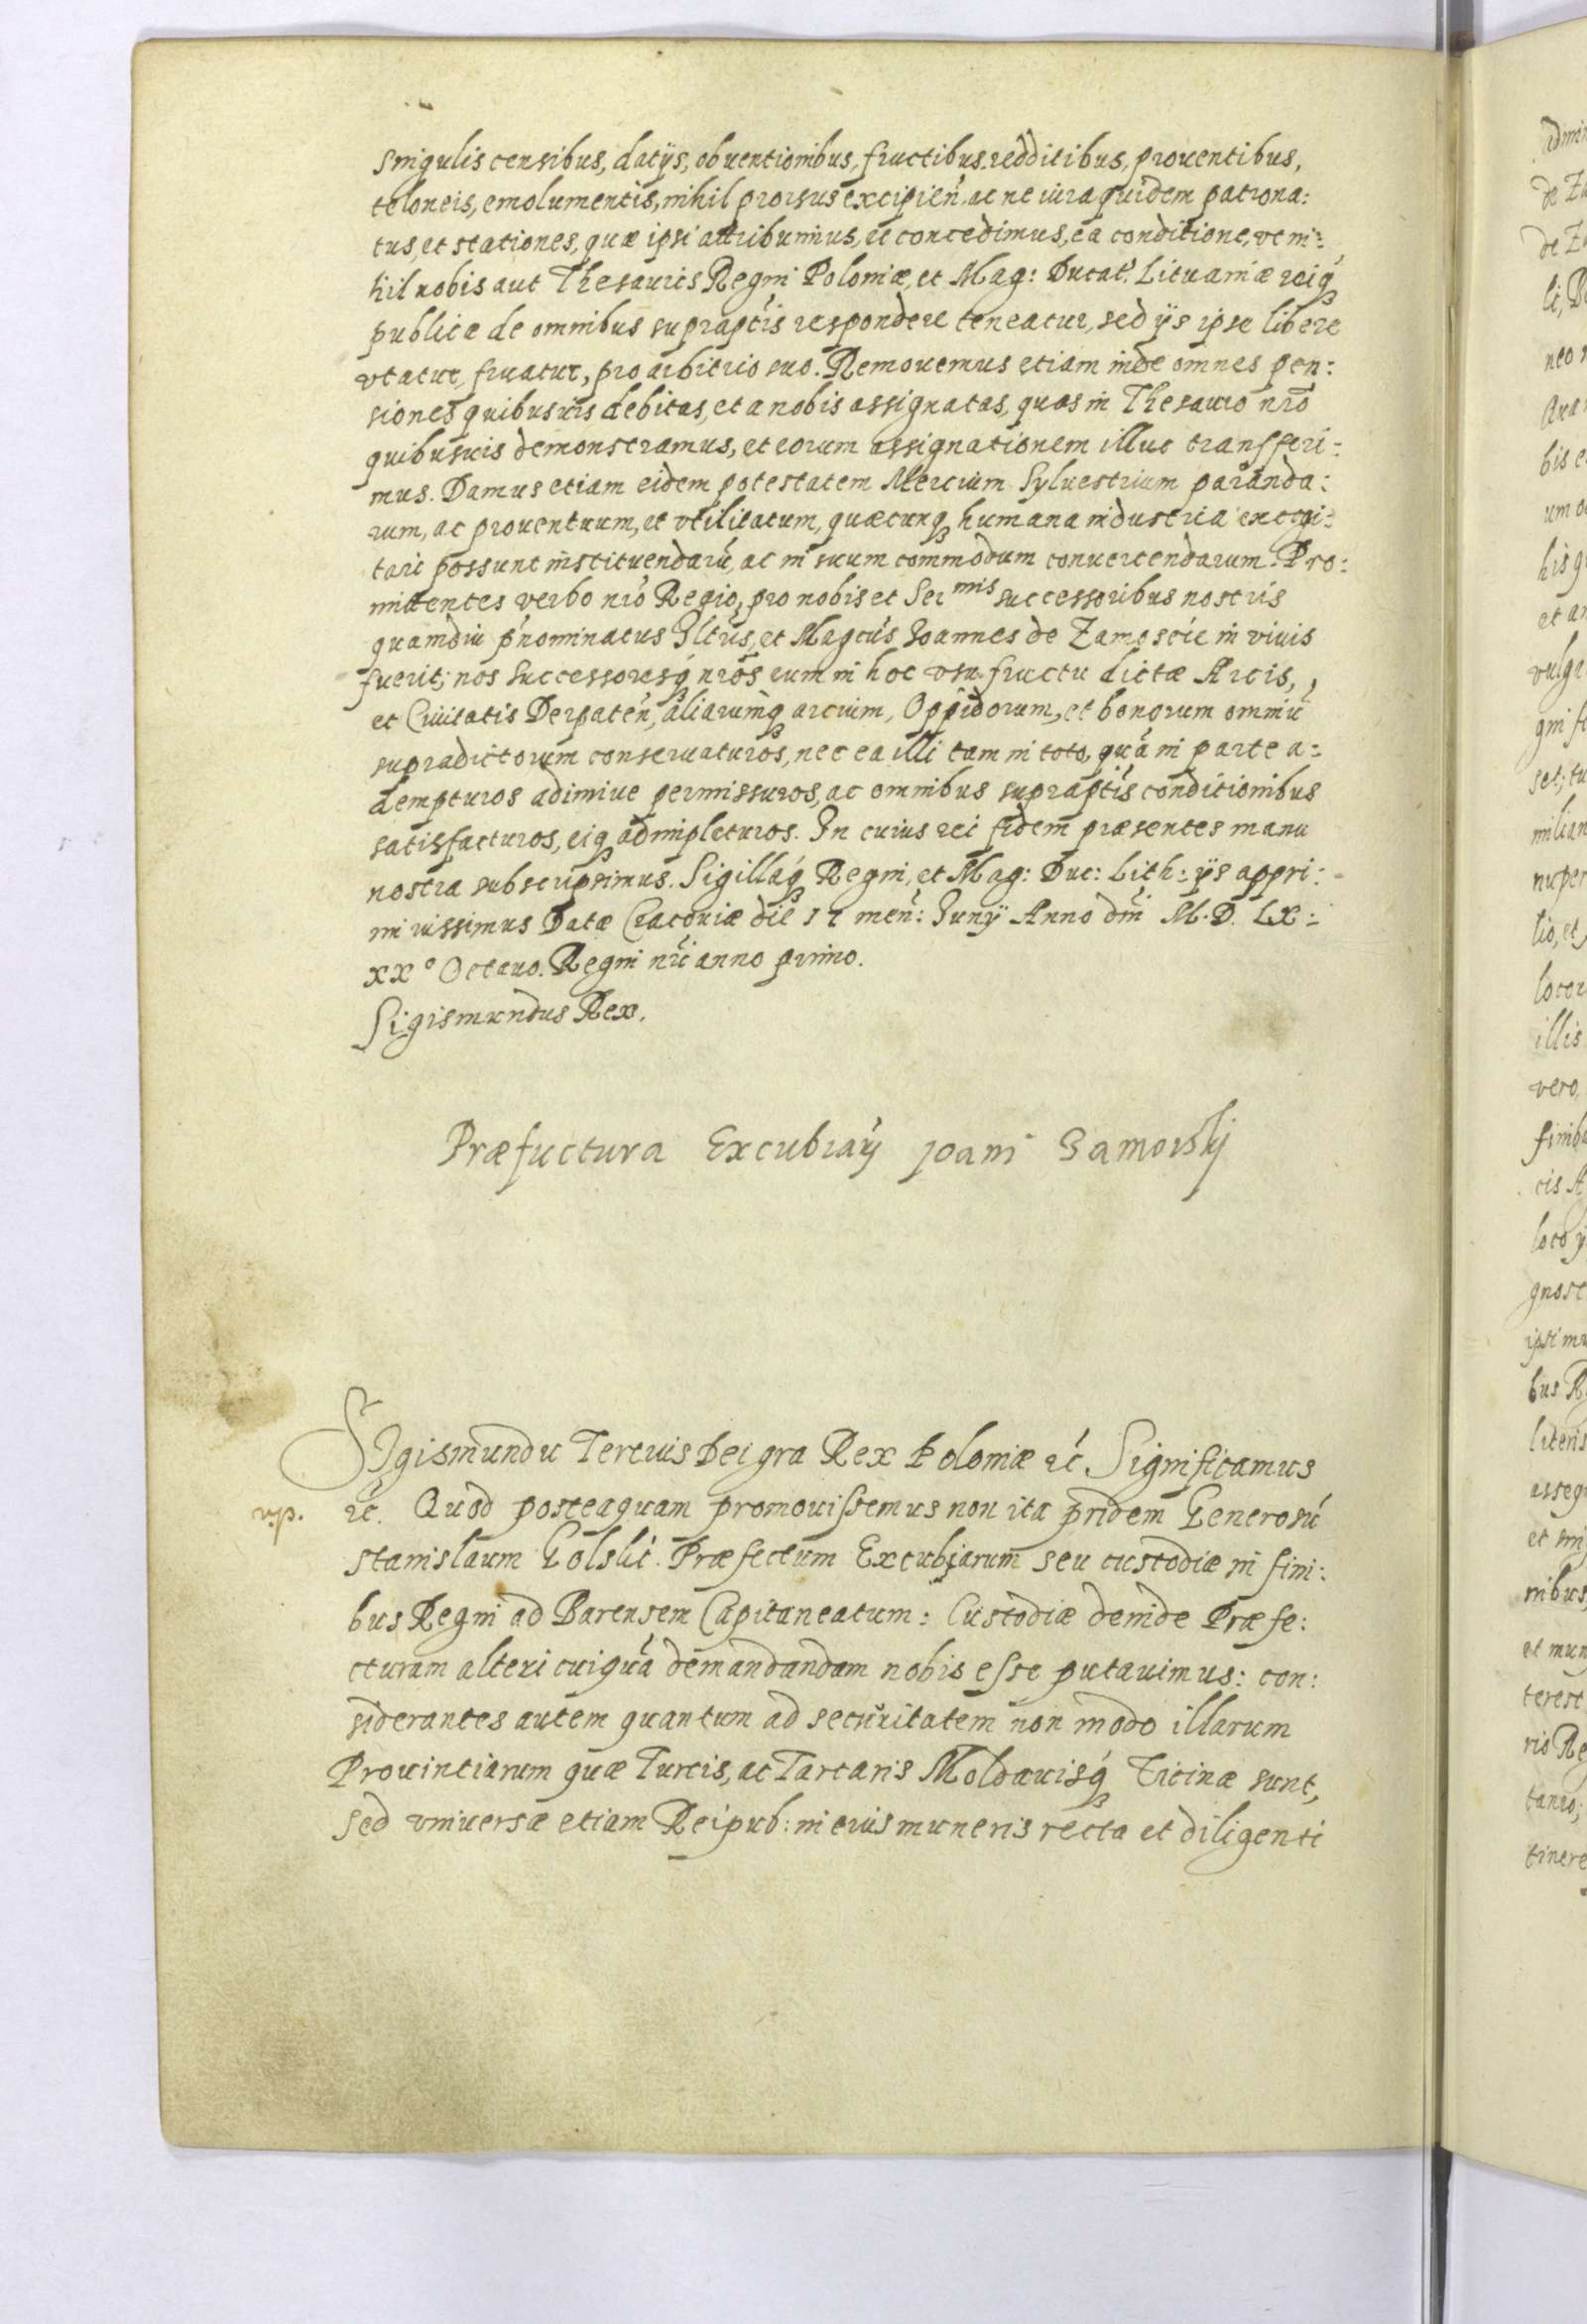 singulis censibus, datijs, obventionibus, fructibus, redditibus, proventibus,
teloneis, emolumentis, nihil prorsus excipień, ac ne iura quidem patrona:
tus, et stationes, quæ ipsi attribuimus, et concedimus, ea conditione, vt ni:
hil nobis aut Thesauris Regni Poloniæ, et Mag: Ducat. Lituaniæ reiq
publicæ de omnibus supraptis respondere teneatur, sed ijs ipse libere
vtatur, fruatur, pro arbitrio suo. Removemus etiam inde omnes pen:
siones quibusvis debitas, et a nobis assignatas, quas in Thesauro nro
quibusvis demonstramus, et eorum assignationem illuc transferi:
mus. Damus etiam eidem potestatem Mercium Sylvestrium paranda:
rum, ac proventuum, et vtilitatum, quæcunq humana industria excogi:
tari possunt instituendarū, ac in suum commodum convertendarum. Pro:
mittentes verbo nro Regio, pro nobis et Ser mis successoribus nostris
quamdiu pnominatus Iltus, et Magcus Ioannes de Zamoscie in vivis
fuerit; nos Successoresq nros eum in hoc vsufructu dictæ Arcis,
et Civitatis Derpateń, aliarumq arcium, Oppidorum, et bonorum omniū
supradictorum conservaturos, nec ea illi tam in toto, quā in parte a:
dempturos adimive permissuros, ac omnibus supraptis conditionibus
satisfacturos, eiq adimpleturos. In cuius rei fidem præsentes manu
nostra subscripsimus. Sigillaq Regni, et Mag: Duc: Lith: ijs appri:
mi iussimus Datæ Cracoviæ die 17 meń: Iunij Anno dni M.D. LX:
XX° Octavo. Regni nri anno primo.
Sigismundus Rex.
Præfuctura Excubiarū Joani Zamoiskij
SIgismundu Tertius Dei gra Rex Poloniæ etc. Significamus
etc. Quod posteaquam promovissemus non ita pridem Generosū
Stanislaum Golski. Præfectum Excubiarum seu custodiæ in fini:
bus Regni ad Barensem Capitaneatum: Custodiæ deinde Præfe:
cturam alteri cuiquā demandandam nobis esse putavimus: con:
siderantes autem quantum ad securitatem non modo illarum
Provintiarum quæ Turcis, ac Tartaris Moldavisq Vicinæ sunt,
sed vniversæ etiam Reipub: in eius muneris recta et diligenti